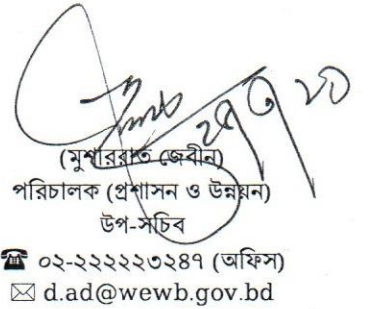 (মুশাররাত জেবীন)
পরিচালক (প্রশাসন ও উন্নয়ন)
উপ-সচিব
☎ ০২-২২২২২৩২৪৭ (অফিস)
✉ d.ad@wewb.gov.bd